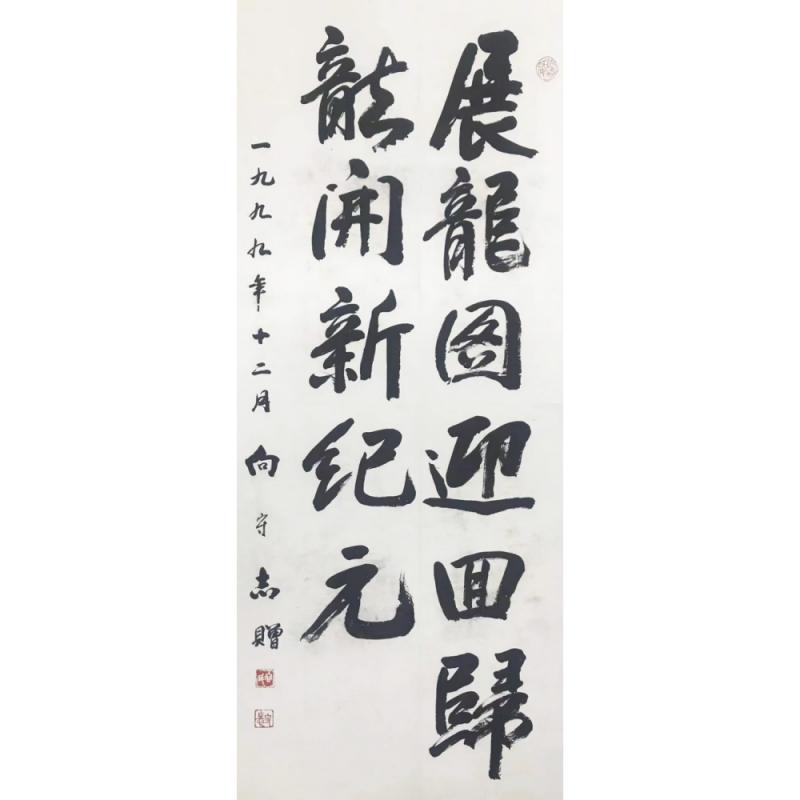 展龍图迎回歸
龍開新纪元
一九九九年十二月 向守志贈